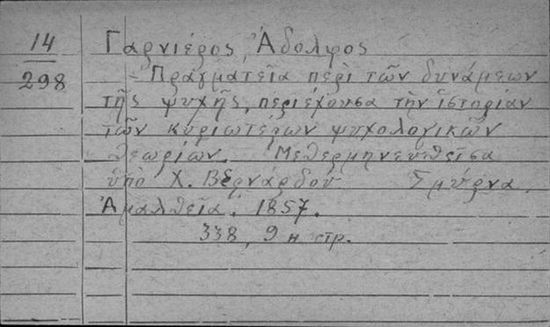 14
298
Γαρνιέρος, Ἀδολφος
- Πραγματεία περὶ τῶν δυνάμεων
τῆς ψυχῆς, περιέχουσα τὴν ἱστορίαν
τῶν κυριωτέρων ψυχολογικῶν
θεωριῶν. Μεθερμηνευθεῖσα
ὑπὸ Χ. Βερνάρδου Σμύρνα,
Ἀμαλθεῖα. 1857.
338, 9 н стр.